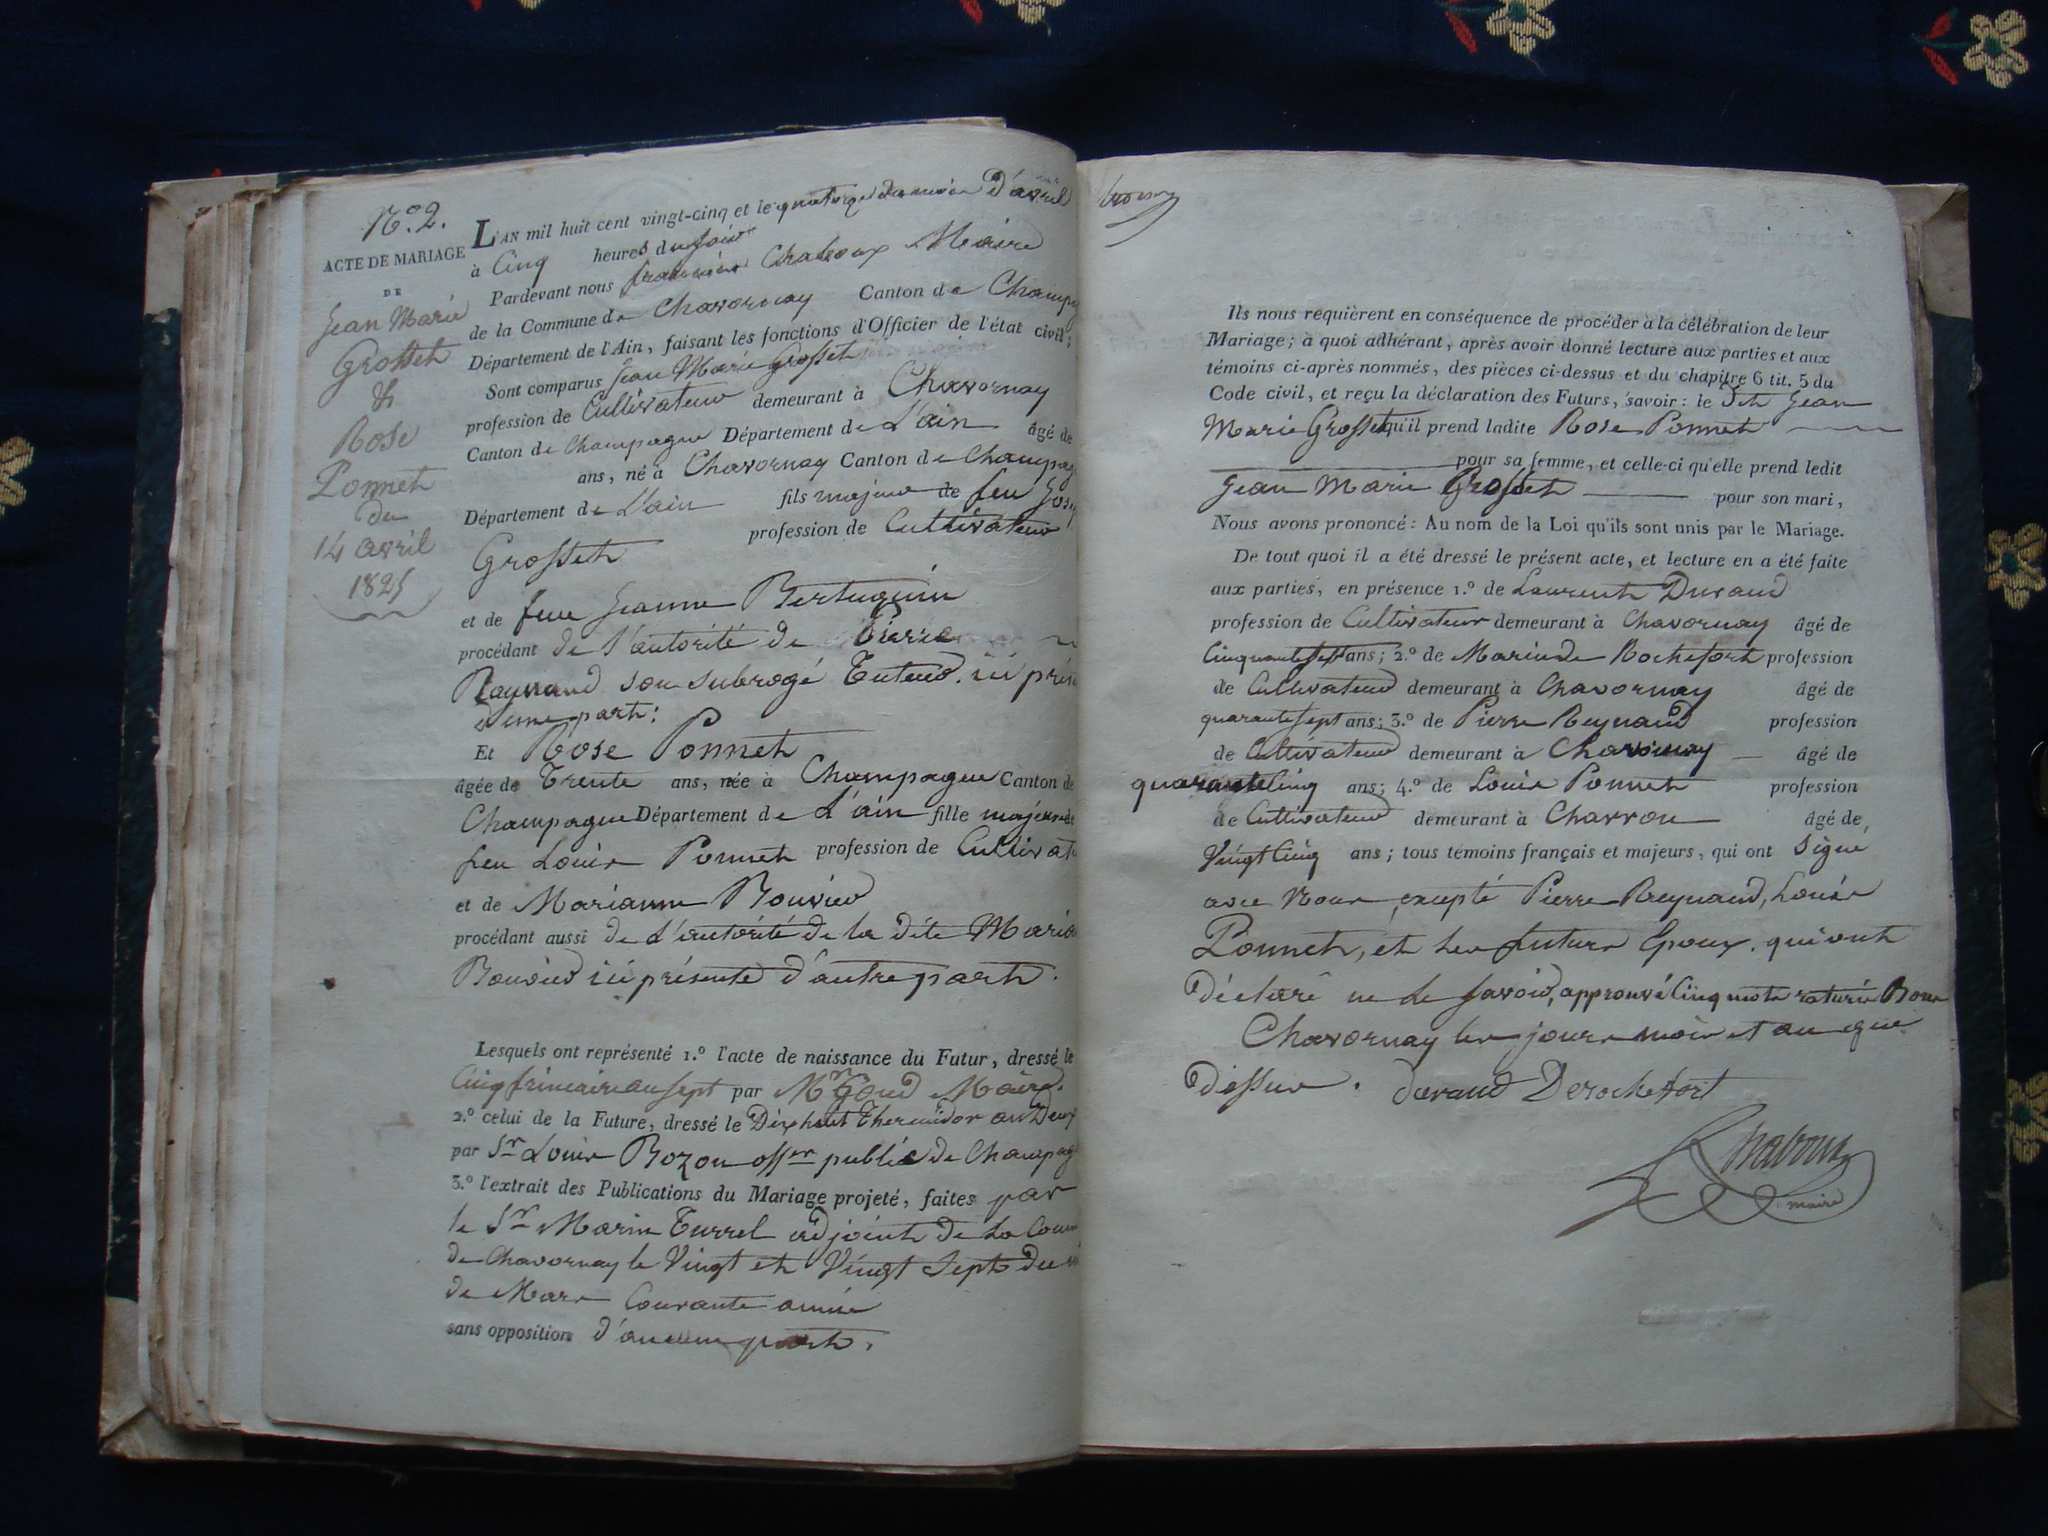 N.o 2.
ACTE DE MARIAGE
DE
Jean Marie
Grosset
&
Rose
Ponnet
du
14 avril
1825
L'AN mil huit cent vingt-cinq et le quatorze du mois D'avril
à Cinq heures du soir
Pardevant nous Chaboux Maire
de la Commune de Chavornay Canton de Champ
Département de l'Ain, faisant les fonctions d'Officier de l'état civil;
Sont comparus Jean Marie Grosset
profession de Cultivateur demeurant à Chavornay
Canton de Champagne Département de L'ain âgé de
ans, né à Chavornay Canton de Champag
Département de L'ain fils majeur de feu Jos
Grosset profession de Cultivateur
et de feue Jeanne Bertuquin
procédant de l'autorité de Pierre
Reynaud son subrogé Tuteur ici prés
d'une part:
Et Rose Ponnet
âgée de Trente ans, née à Champagne Canton de
Champagne Département de L'ain fille majeure de
feu Louis Ponnet profession de Cultivat
et de Marianne Bouvier
procédant aussi de L'autorité de la dite Maria
Bouvier ici présente d'autre part.
Lesquels ont représenté 1.o l'acte de naissance du Futur, dressé le
Cinq frimaire an sept par Mr Goud Maire.
2.o celui de la Future, dressé le Dix huit Thermidor an Deux
par Sr Louis Bozon offer public de Champag
3.o l'extrait des Publications du Mariage projeté, faites par
le Sr Marin Turrel adjoint de La Com
de Chavornay le Vingt et Vingt Sept du
de Mars Courante année
sans opposition d'aucune part.
Ils nous requièrent en conséquence de procéder à la célébration de leur
Mariage; à quoi adhérant, après avoir donné lecture aux parties et aux
témoins ci-après nommés, des pièces ci-dessus et du chapitre 6 tit. 5 du
Code civil, et reçu la déclaration des Futurs, savoir: le dit Jean
Marie Grosset qu'il prend ladite Rose Ponnet
pour sa femme, et celle-ci qu'elle prend ledit
Jean Marie Grosset pour son mari,
Nous avons prononcé: Au nom de la Loi qu'ils sont unis par le Mariage.
De tout quoi il a été dressé le présent acte, et lecture en a été faite
aux parties, en présence 1.o de Laurent Durand
profession de Cultivateur demeurant à Chavornay âgé de
Cinquante sept ans; 2.o de Marin de Rochefort profession
de Cultivateur demeurant à Chavornay âgé de
quarante sept ans; 3.o de Pierre Reynaud profession
de Cultivateur demeurant à Chavornay âgé de
quarante Cinq ans; 4.o de Louis Ponnet profession
de Cultivateur demeurant à Charron âgé de
Vingt Cinq ans; tous témoins français et majeurs, qui ont signé
avec Nous, excepté Pierre Reynaud, Louis
Ponnet, et les futurs Epoux, qui ont
Déclaré ne le savoir, approuvé Cinq mots raturés
Chavornay les jour mois et an que
dessus. durand Derochefort
Chaboux
maire